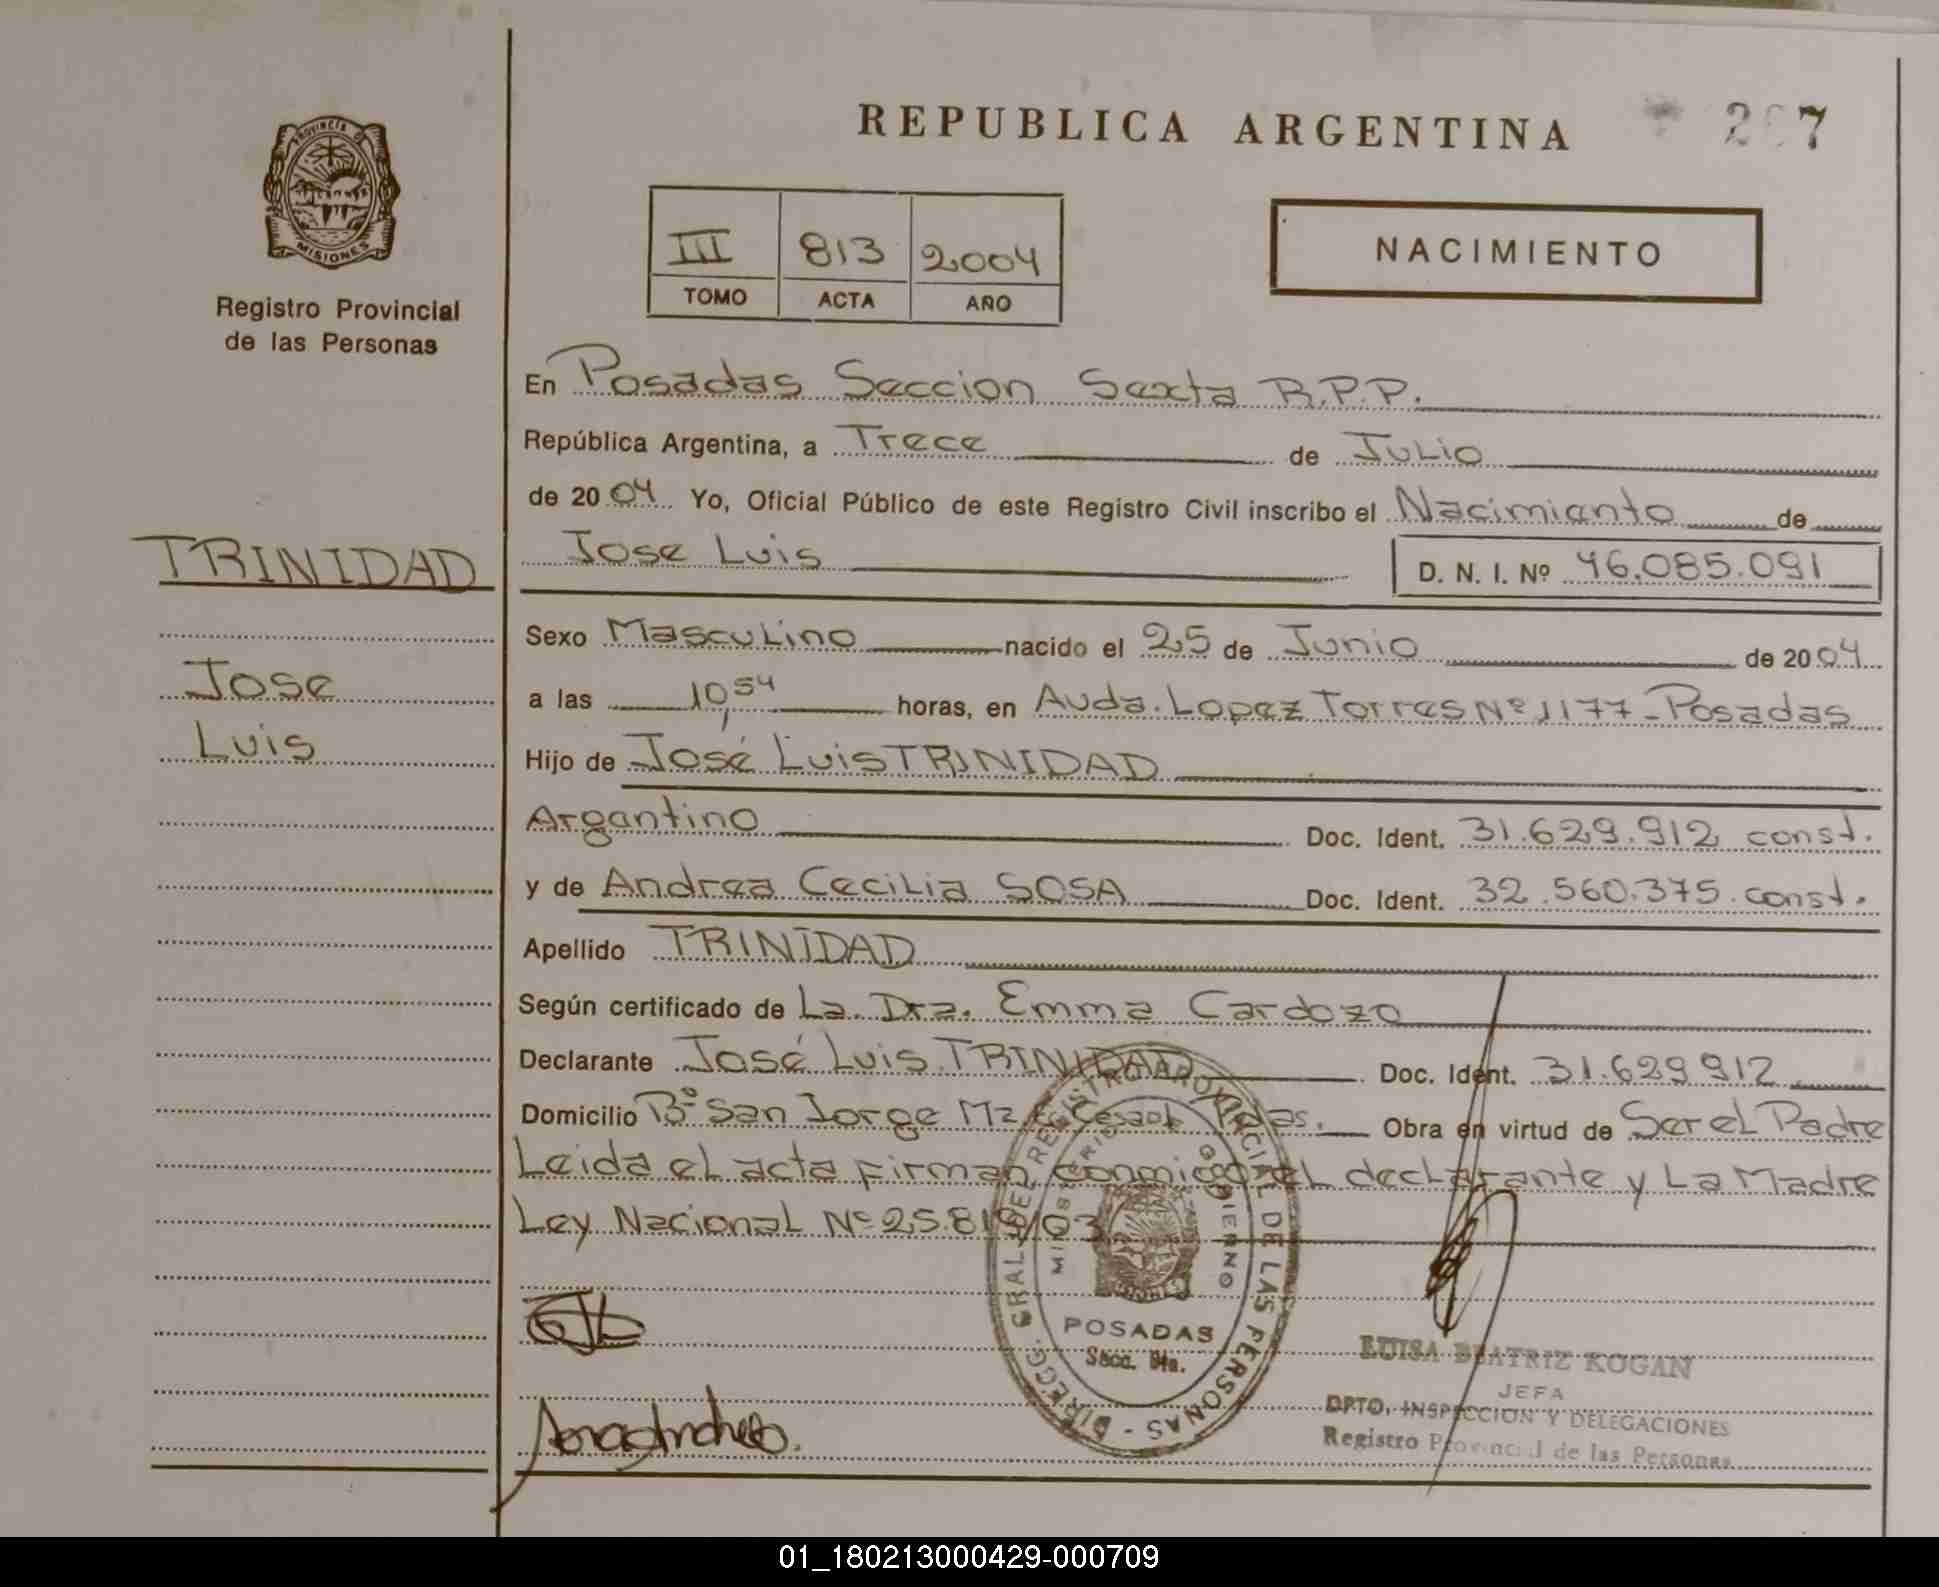 REPUBLICA ARGENTINA
PROVINCIA DE
MISIONES
Registro Provincial
de las Personas
III 813 2004
TOMO ACTA AÑO
NACIMIENTO
En Posadas Seccion Sexta R.P.P.
República Argentina, a Trece de Julio
de 2004 Yo, Oficial Público de este Registro Civil inscribo el Nacimiento de
Jose Luis D. N. I. Nº 46.085.091
TRINIDAD
Jose
Luis
Sexo Masculino nacido el 25 de Junio de 2004
a las 10,54 horas, en Avda. Lopez Torres Nº 1177-Posadas
Hijo de José Luis TRINIDAD
Argentino Doc. Ident. 31.629.912 const.
y de Andrea Cecilia SOSA Doc. Ident. 32.560.375 const.
Apellido TRINIDAD
Según certificado de La Dra. Emma Cardozo
Declarante José Luis TRINIDAD Doc. Ident. 31.629.912
Domicilio Bº San Jorge Mz Obra en virtud de Ser el Padre
Leida el acta firman conmigo el declarante y La Madre
Ley Nacional Nº 25.819/03
DIRECC. GRAL. DEL REGISTRO PROVINCIAL DE LAS PERSONAS
MINISTERIO GOBIERNO
POSADAS
Secc.
LUISA BEATRIZ KOGAN
JEFA
DPTO. INSPECCION Y DELEGACIONES
Registro Provincial de las Personas
01_180213000429-000709